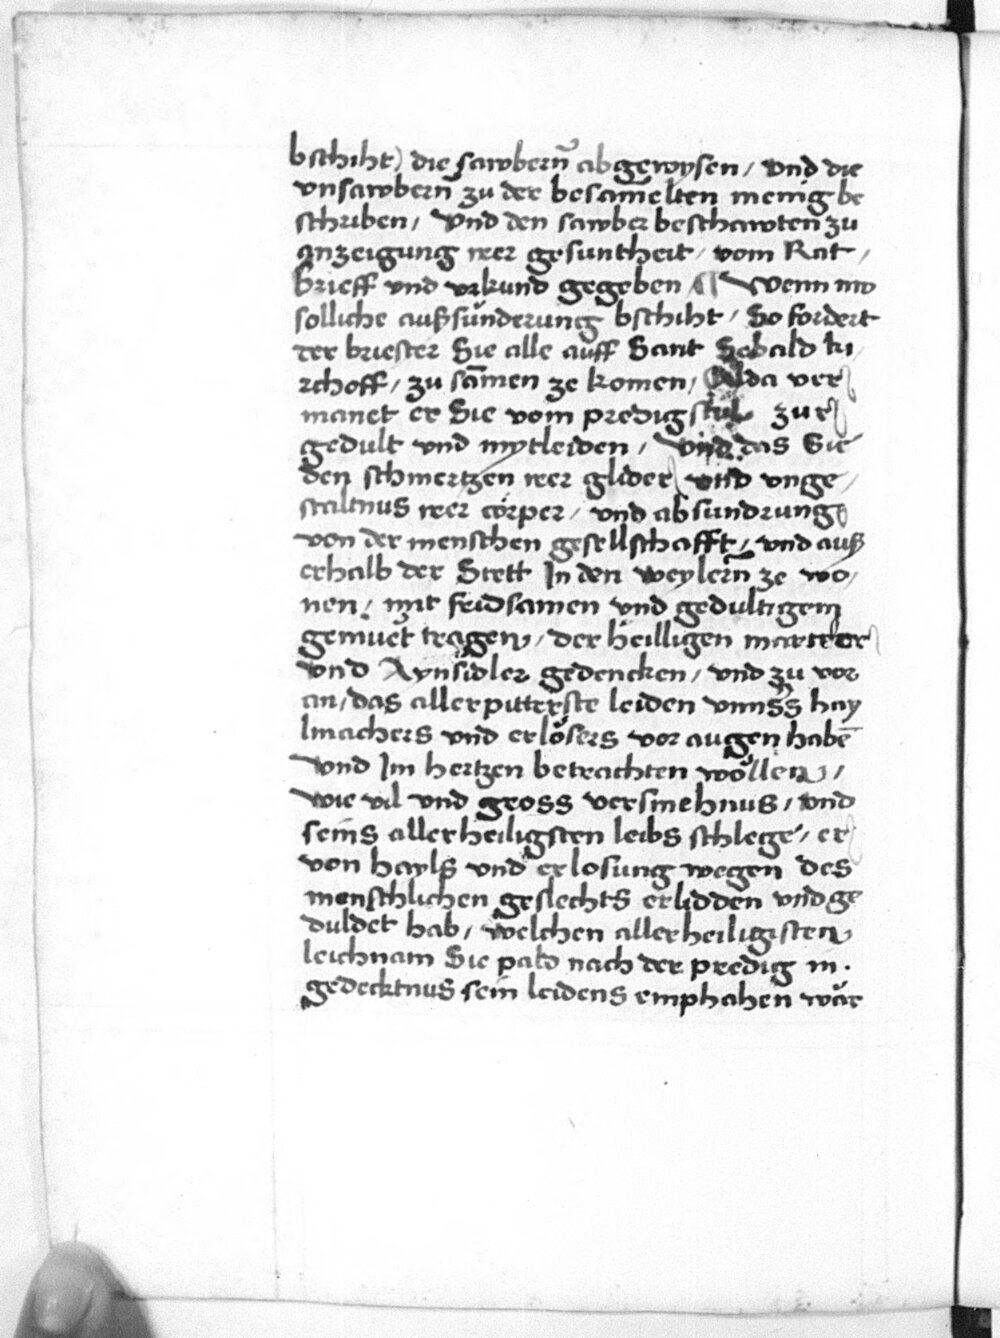 bschiht) die sawbern̄ abgewysen / vnd die
vnsawbern̄ zu der besam̄elten menig be
schriben / Vnd den sawber beschawten zu
anzeigung irer gesuntheit / vom Rat /
Brieff vnd vrkund gegeben / ¶ Wenn nw
solliche außsunderung bschiht / So fordert
der briester Sie alle auff Sant Sebald ki /
rchoff / zu sam̄en ze komen / Alda ver
manet er Sie vom predigstul zur
gedult vnd mytleiden / Vnd das Sie
den schmertzen irer glider vnd vnge /
staltnus irer cörper / vnd absundrung
von der menschen gesellschafft / vnd auß
erhalb der Stett In den weylern̄ ze wo /
nen / mit fridsamen vnd gedultigem
gemuet tragen / der heilligen martrer
vnd Aynsidler gedencken / vnd zu vor
an / das aller pitterste leiden vnnsers hay
lmachers vnd erlösers vor augen habē
Vnd Im hertzen betrachten wöllen /
wie vil vnd gross versmehnus / vnd
seins allerheiligsten leibs schlege / er
von hayls vnd erlosung wegen des
menschlichen geslechts erlidden vnd ge
duldet hab / welchen allerheiligisten
leichnam Sie pald nach der predig in ·
gedecktnus sein leidens emphahen wür